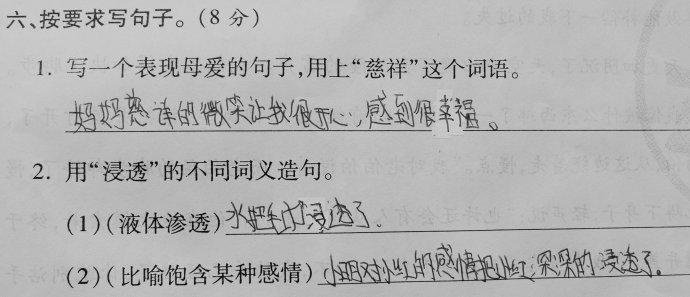 六、按要求写句子。(8 分)
1. 写一个表现母爱的句子,用上“慈祥”这个词语。
妈妈慈详的微笑让我很开心,感到很幸福。
2. 用“浸透”的不同词义造句。
(1)(液体渗透)水把毛巾浸透了。
(2)(比喻饱含某种感情)小明对小红的感情把小红深深的浸透了。